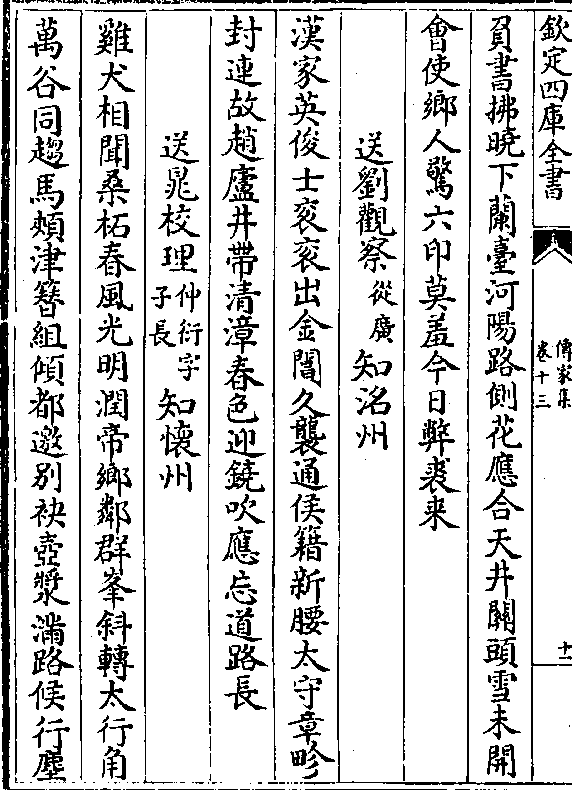 欽定四庫全書
傳家集
卷十三
十一
負書拂曉下蘭臺河陽路側花應合天井關頭雪未開
會使鄉人驚六印莫羞今日弊裘来
送劉觀察從廣知洺州
漢家英俊士衮衮出金閨久襲通侯籍新腰太守章畛
封連故趙廬井帶清漳春色迎鐃吹應忘道路長
送晁校理仲衍字子長知懷州
雞犬相聞桑柘春風光明潤帝鄉鄰群峯斜轉太行角
萬谷同趨馬頰津簪組傾都邀别袂壺漿滿路候行塵